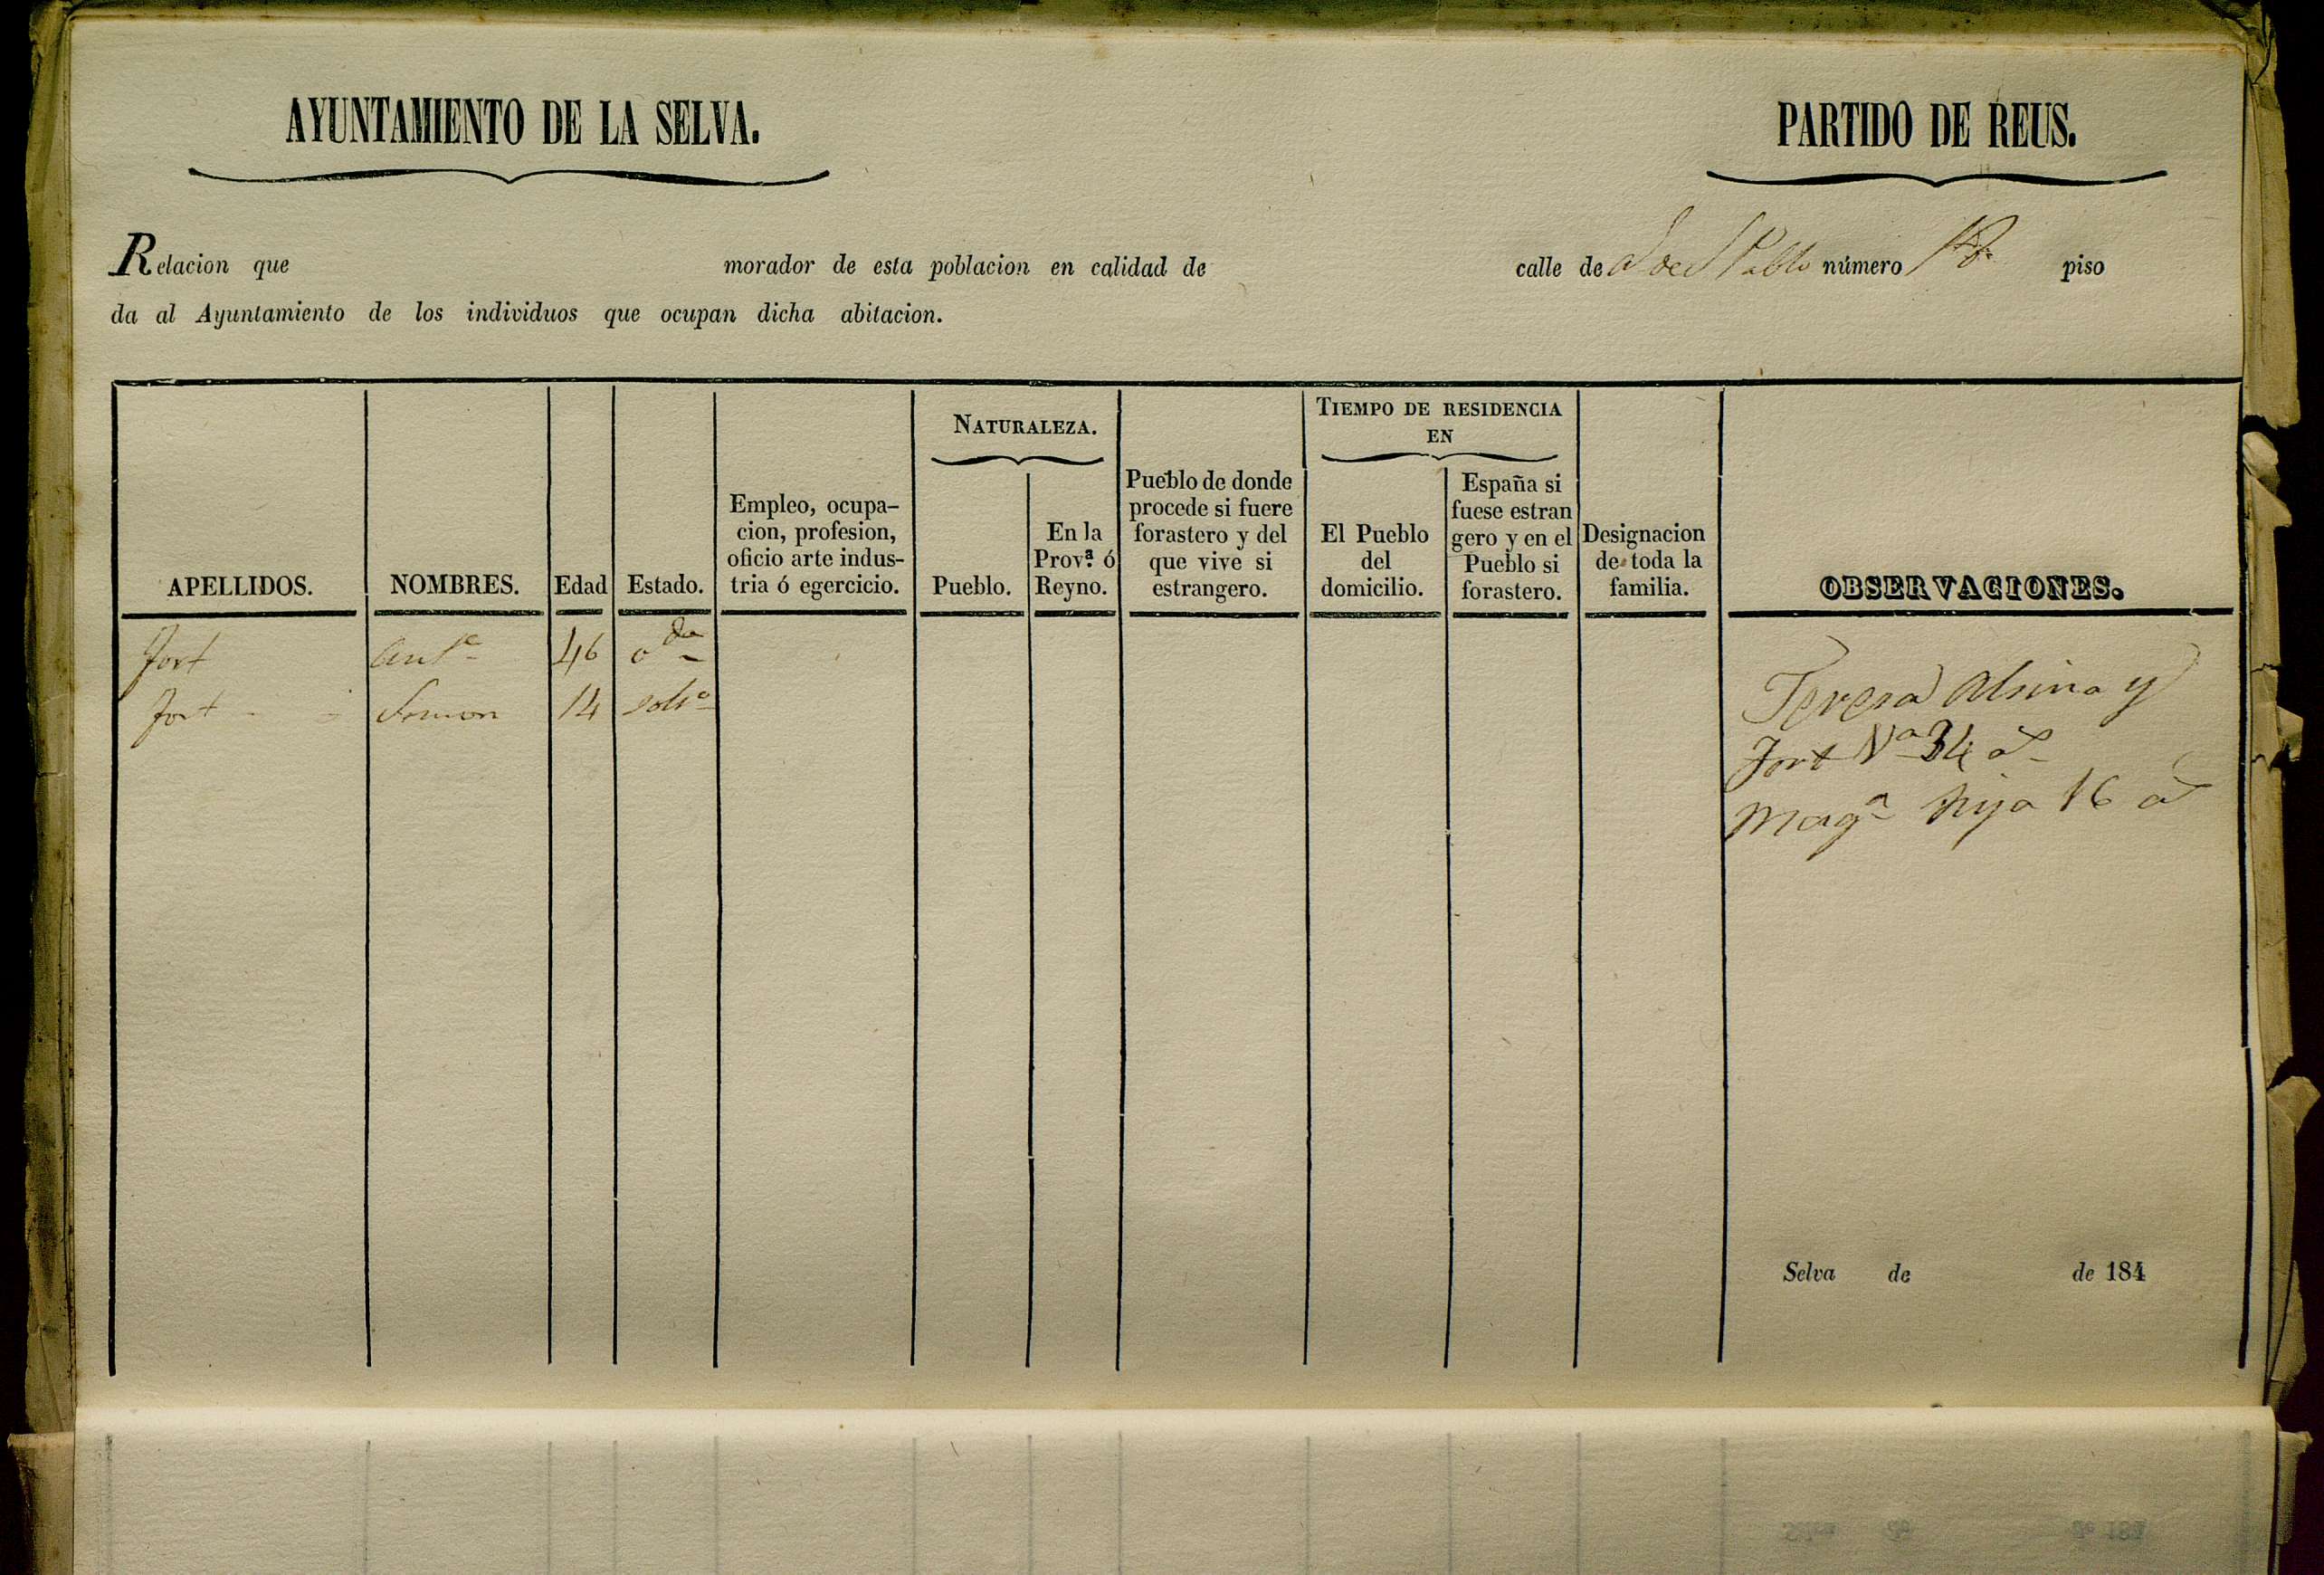 AYUNTAMIENTO DE LA SELVA.
PARTIDO DE REUS.
Relacion que morador de esta poblacion en calidad de calle de S Pablo número piso
da al Ayuntamiento de los individuos que ocupan dicha abitacion.
APELLIDOS.
NOMBRES.
Edad
Estado.
Empleo, ocupa-
cion, profesion,
oficio arte indus-
tria ó egercicio.
NATURALEZA.
Pueblo.
En la
Prov.ª ó
Reyno.
Pueblo de donde
procede si fuere
forastero y del
que vive si
estrangero.
TIEMPO DE RESIDENCIA
EN
El Pueblo
del
domicilio.
España si
fuese estran
gero y en el
Pueblo si
forastero.
Designacion
de toda la
familia.
OBSERVACIONES.
Fort Antº 46
Fort Simon 14 solº
Teresa Alsina y
Fort Vª 34 aˢ
Magª hija 16 aˢ
Selva de de 184